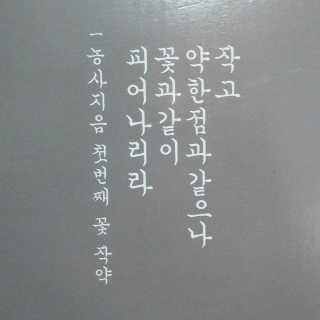 작고
약한점과같으나
꽃과같이
피어나리라
一 농사지음 첫번째 꽃 작약